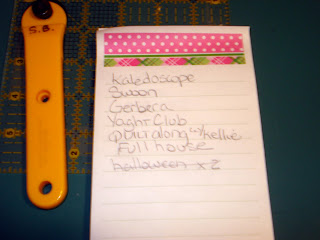 S.B.
Kaledoscope
Swoon
Gerbera
Yacht Club
Quiltalong w/ Kellie
Full house
halloween x 2